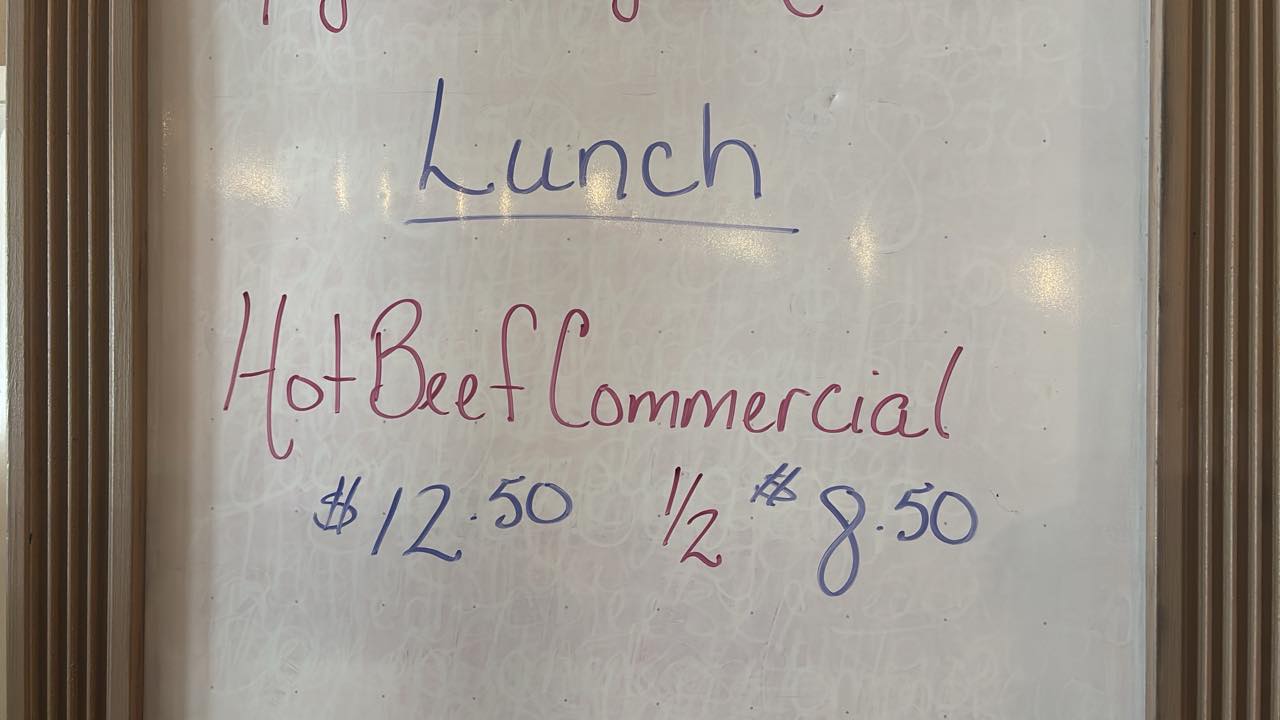 Lunch
Hot Beef Commercial
$12.50 1/2 $8.50